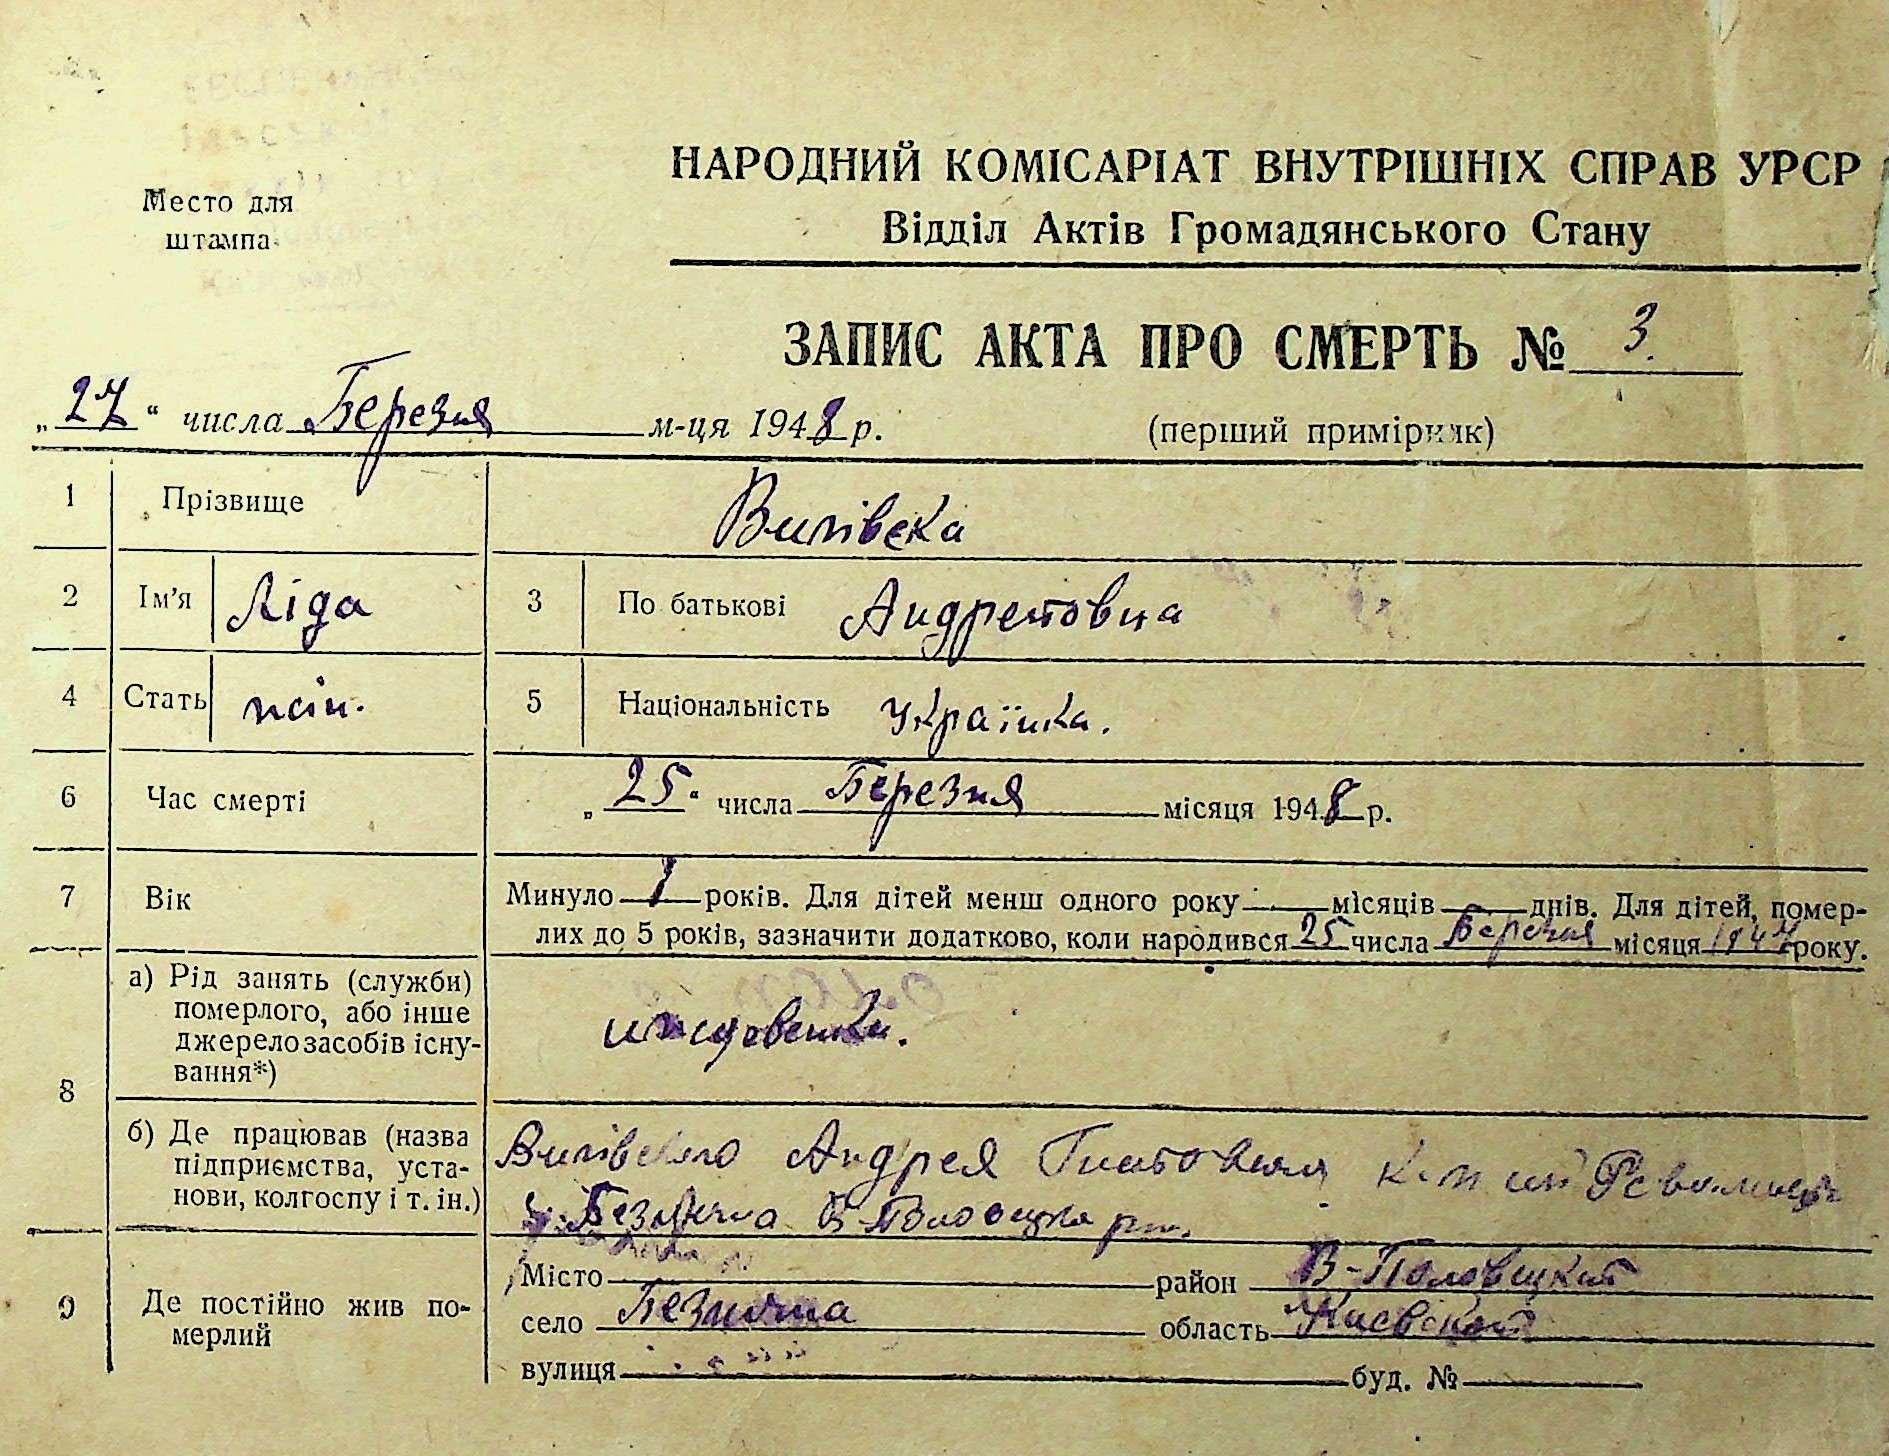 Место для
штампа
НАРОДНИЙ КОМІСАРІАТ ВНУТРІШНІХ СПРАВ УРСР
Відділ Актів Громадянського Стану
ЗАПИС АКТА ПРО СМЕРТЬ № 3.
„27“ числа Березня м-ця 1948 р.
(перший примірник)
1 Прізвище
2 Ім’я Ліда 3 По батькові Андреевна
4 Стать жін. 5 Національність Українка.
6 Час смерті „25“ числа Березня місяця 1948 р.
7 Вік Минуло 1 років. Для дітей менш одного року — місяців — днів. Для дітей, помер-
лих до 5 років, зазначити додатково, коли народився 25 числа Березня місяця 1947 року.
8 а) Рід занять (служби)
померлого, або інше
джерело засобів існу-
вання*)
иждевенка.
б) Де працював (назва
підприємства, уста-
нови, колгоспу і т. ін.)
Андрея
В-Половецкого
9 Де постійно жив по-
мерлий
Місто район В-Половецкий
село Безпечна область Киевской
вулиця буд. №